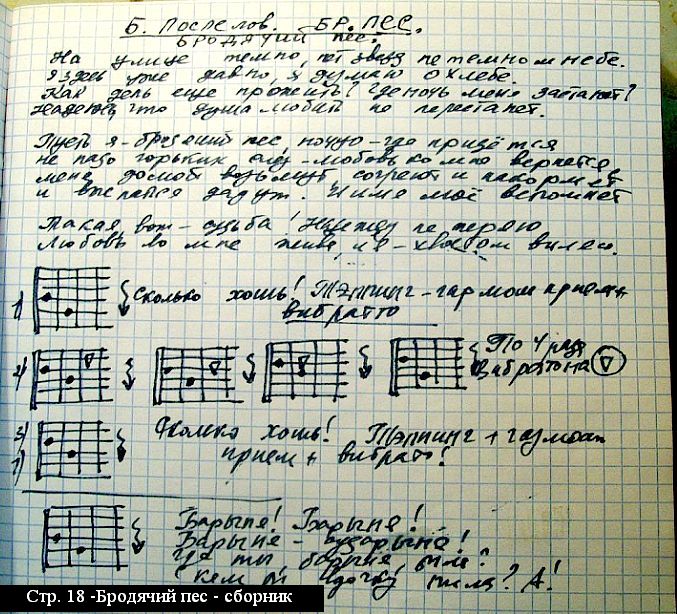 Б. Послелов. БР. ПЕС.
БРОДЯЧИЙ ПЕС.
На улице темно, нет звезд на темном небе.
Я здесь уже давно, я думаю о хлебе.
Как день еще прожить? Где ночь меня застанет?
Надеюсь, что душа любить не перестанет.
Пусть я - бродячий пес, ночую - где придётся
не надо горьких слез - любовь ко мне вернется
меня домой возьмут, согреют и накормят
и выспатся дадут. И имя моё вспомнят
Такая, вот - судьба! Надежду не теряю
Любовь во мне жива, и я - хвостом виляю.
1) Сколько хошь! Тэппинг - гармон прием +
вибратто
2) По 4 раза
Вибрато на
3) Сколько хошь! Тэппинг +
прием + вибрато!
Барыня! Барыня!
Барыня - сударыня!
Где ты барыня была?
Стр. 18 -Бродячий пес - сборник